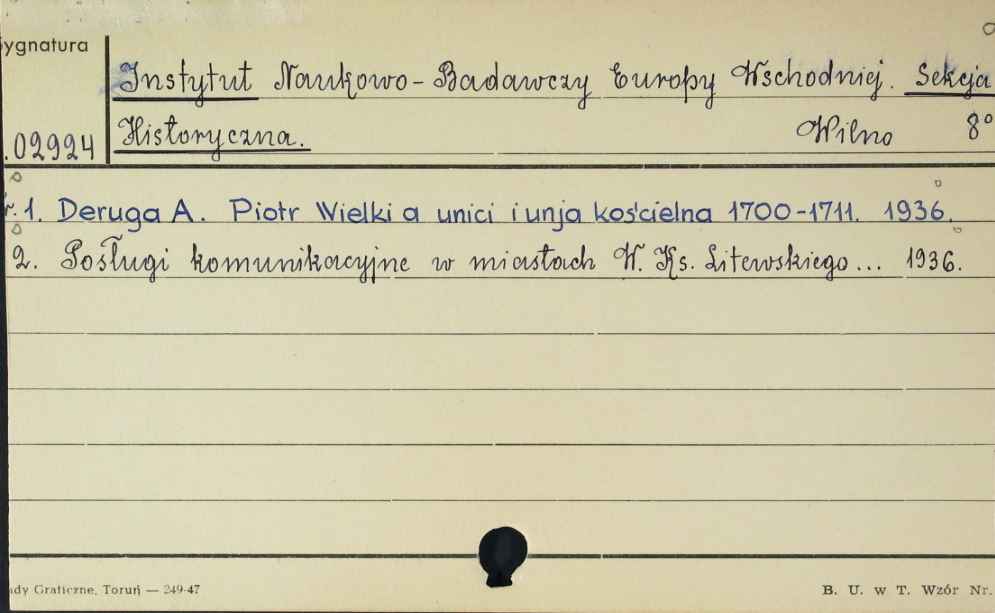 ygnatura
Instytut Naukowo-Badawczy Europy Wschodniej. Sekcja
.02924 Historyczna. Wilno 8°
r. 1. Deruga A. Piotr Wielki a unici i unja kościelna 1700-1711. 1936.
2. Posługi komunikacyjne w miastach W. Ks. Litewskiego... 1936.
ady Graficzne, Toruń — 249-47 B. U. w T. Wzór Nr.